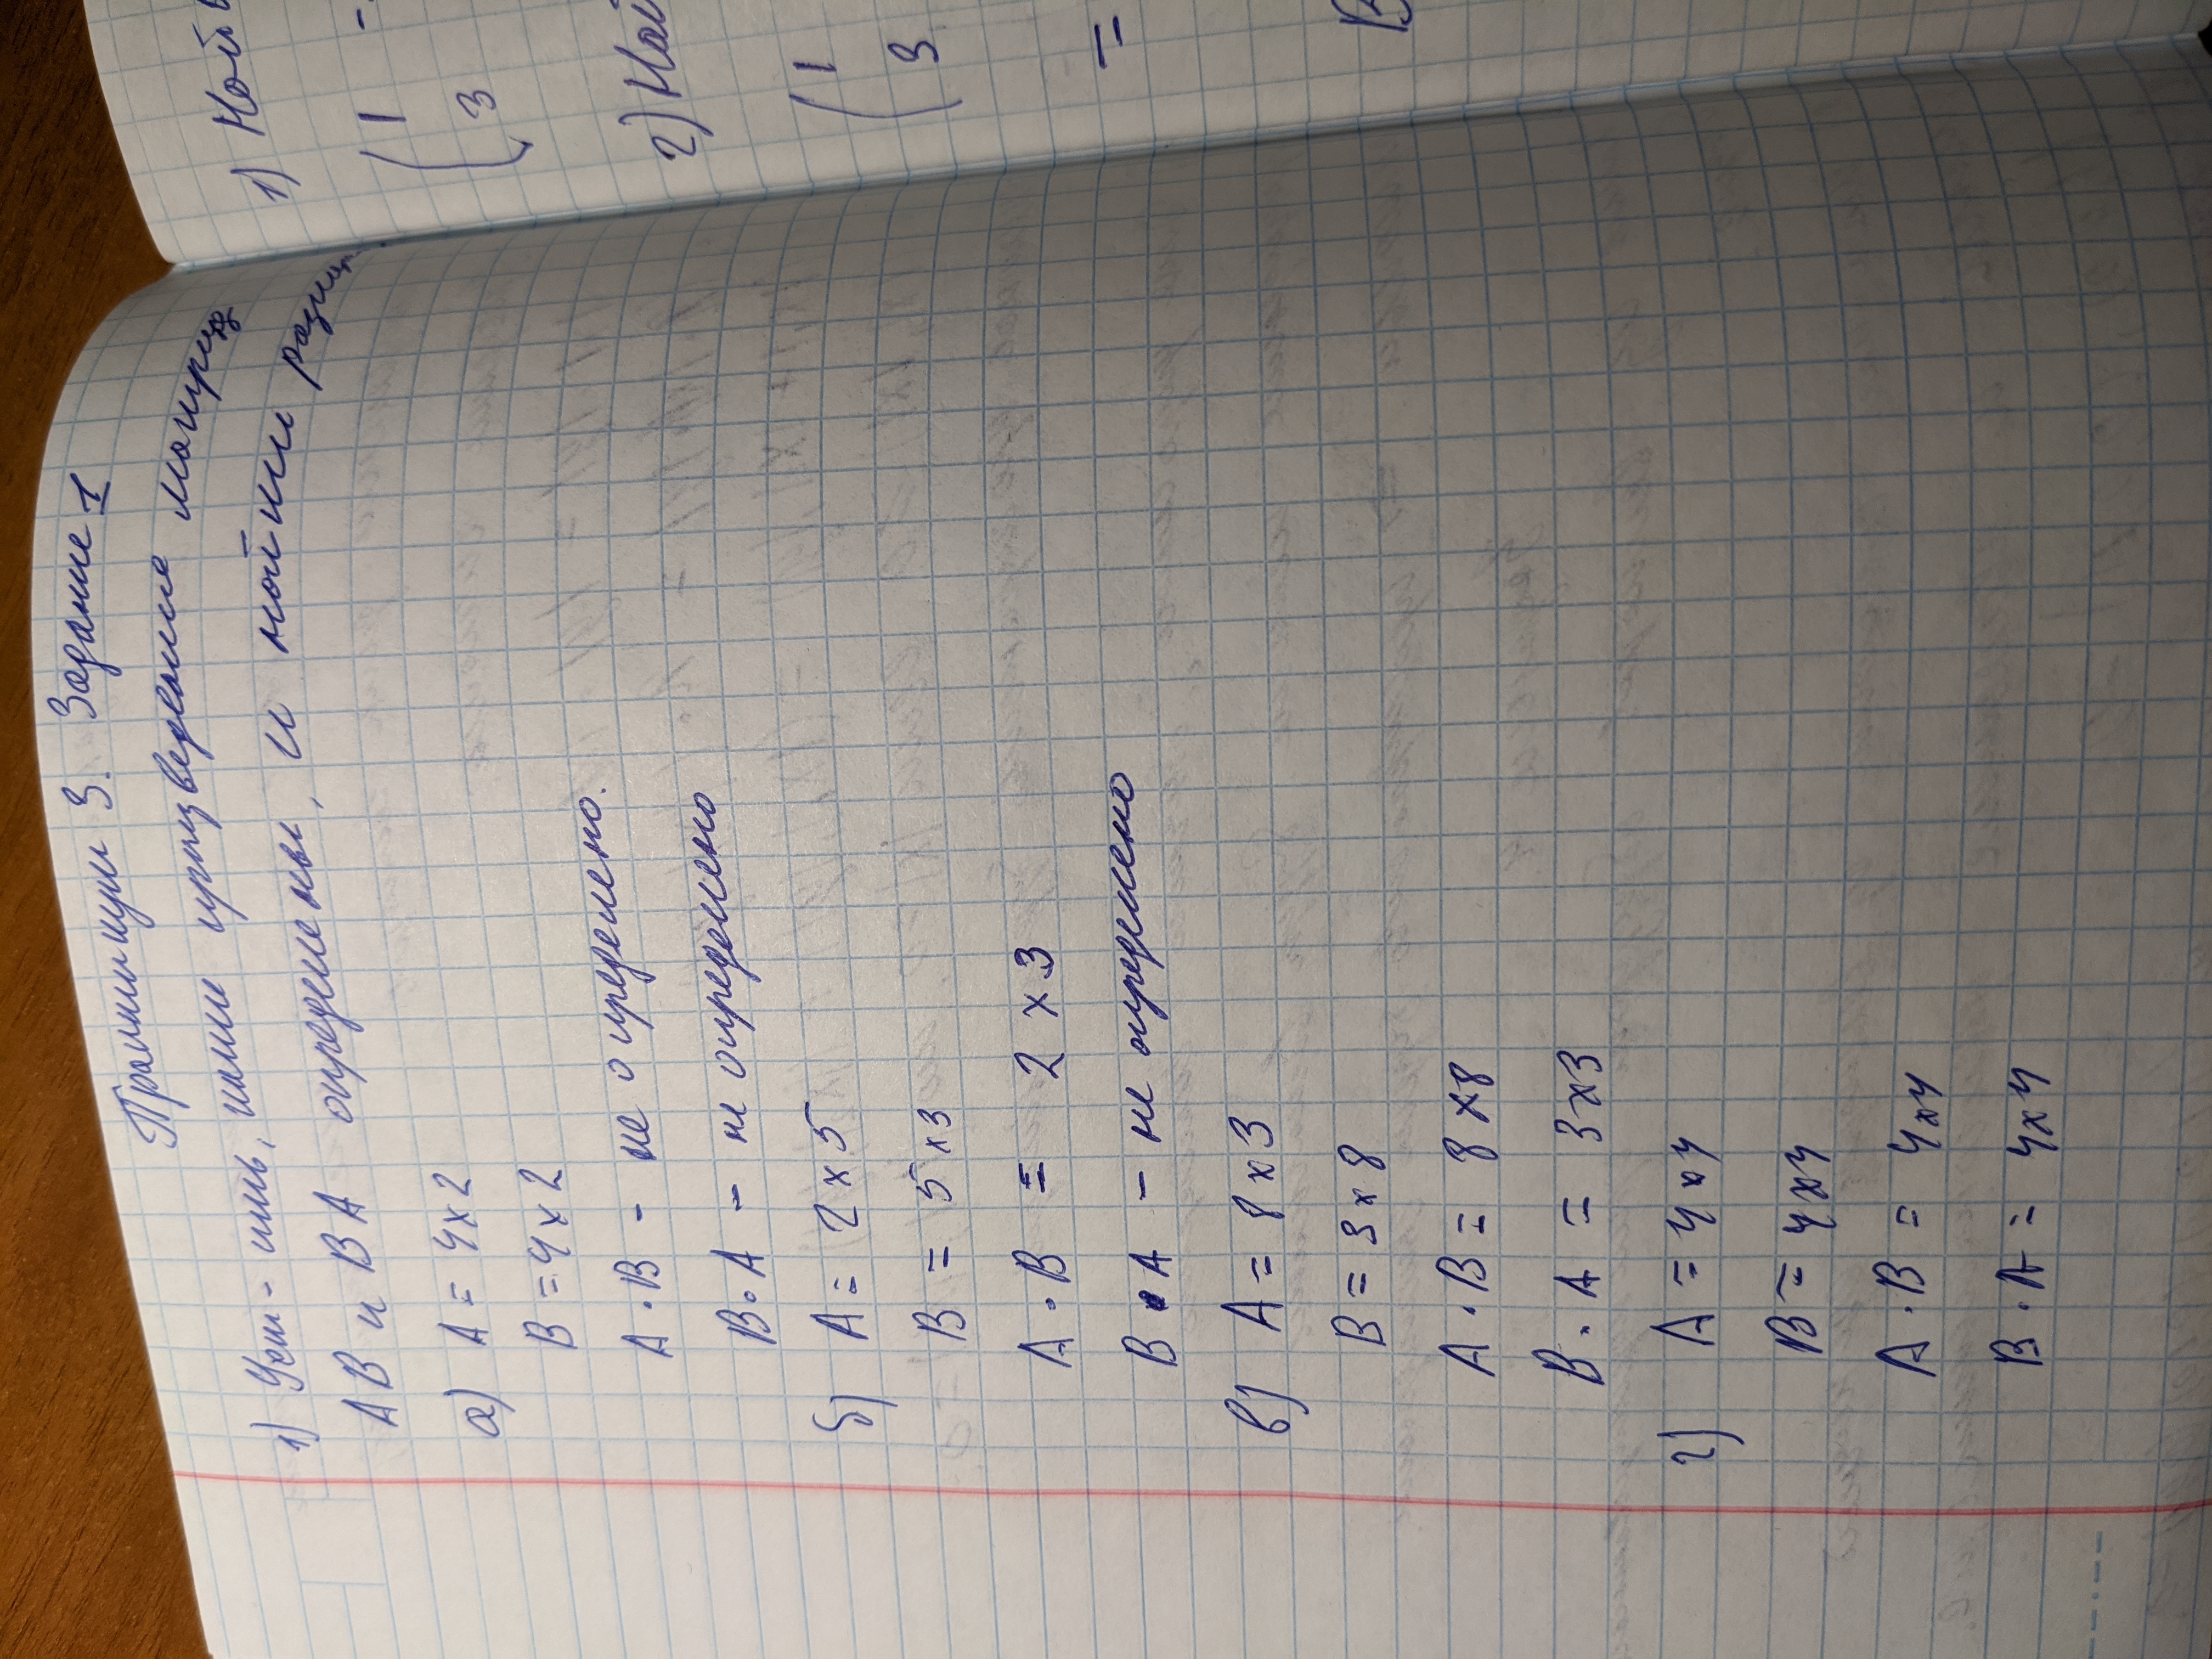 Практикум 3. Задание 1
1) Уст-ить, какие произведения матриц
AB и BA определены, и найти размер.
а) A = 4x2
B = 4x2
A · B - не определено.
B · A - не определено
б) A = 2 x 5
B = 5 x 3
A · B = 2 x 3
B · A - не определено
в) A = 8 x 3
B = 3 x 8
A · B = 8 x 8
B · A = 3x3
г) A = 4x4
B = 4x4
A · B = 4x4
B · A = 4x4
1)
1 -
3
2) Най
1
3
=
B